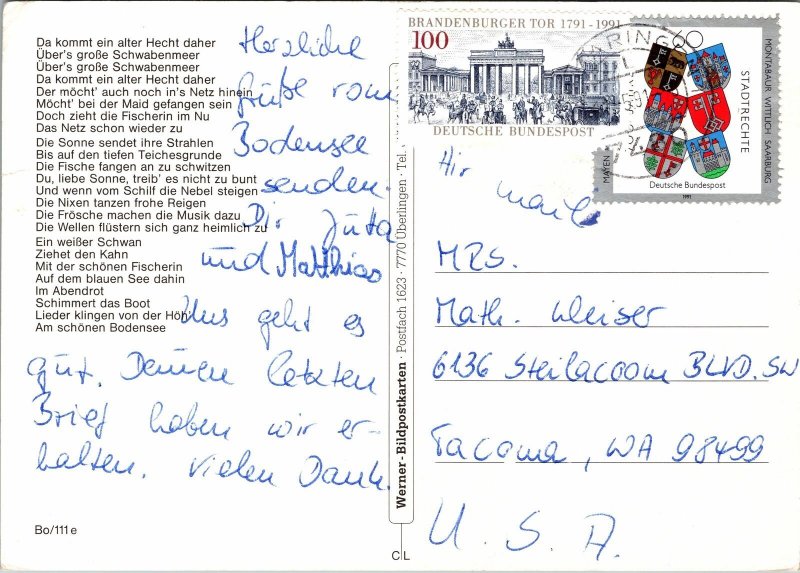 Da kommt ein alter Hecht daher
Über's große Schwabenmeer
Über's große Schwabenmeer
Da kommt ein alter Hecht daher
Der möcht' auch noch in's Netz hinein
Möcht' bei der Maid gefangen sein
Doch zieht die Fischerin im Nu
Das Netz schon wieder zu
Die Sonne sendet ihre Strahlen
Bis auf den tiefen Teichesgrunde
Die Fische fangen an zu schwitzen
Du, liebe Sonne, treib' es nicht zu bunt
Und wenn vom Schilf die Nebel steigen
Die Nixen tanzen frohe Reigen
Die Frösche machen die Musik dazu
Die Wellen flüstern sich ganz heimlich zu
Ein weißer Schwan
Ziehet den Kahn
Mit der schönen Fischerin
Auf dem blauen See dahin
Im Abendrot
Schimmert das Boot
Lieder klingen von der Höh'
Am schönen Bodensee
Herzliche
Grüße vom
Bodensee
senden
Dir Juta
und Matthias
Uns geht es
gut. Deinen letzten
Brief haben wir er-
halten. Vielen Dank.
Bo/111 e
Werner-Bildpostkarten · Postfach 1623 · 7770 Überlingen · Tel.
C L
BRANDENBURGER TOR 1791-1991
100
DEUTSCHE BUNDESPOST
60
MONTABAUR WITTLICH SAARBURG
STADTRECHTE
MAYEN
Deutsche Bundespost
1991
Air mail
MRS.
Math. Weiser
6136 Steilacoom BLVD. SW
Tacoma, WA 98499
U. S. A.